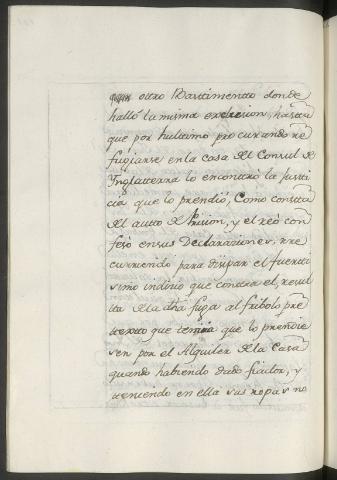 otro Bastimentto donde
halló la misma exclusion, hasta
que por hultimo procurando re
fugiarse en la casa del Consul de
Ynglatterra lo encontró la Justi
cia que lo prendió, Como constta
del autto de Prision, y el reó con
fesó en sus Declaraziones, rre
curriendo para disipar el fuertti
simo indicio que contra el, resul
tta de la dha fuga al fribolo pre
ttextto que temia que lo prendie
sen por el Alquiler de la Casa
quando habiendo dado fiador, y
teniendo en ella sus ropas no